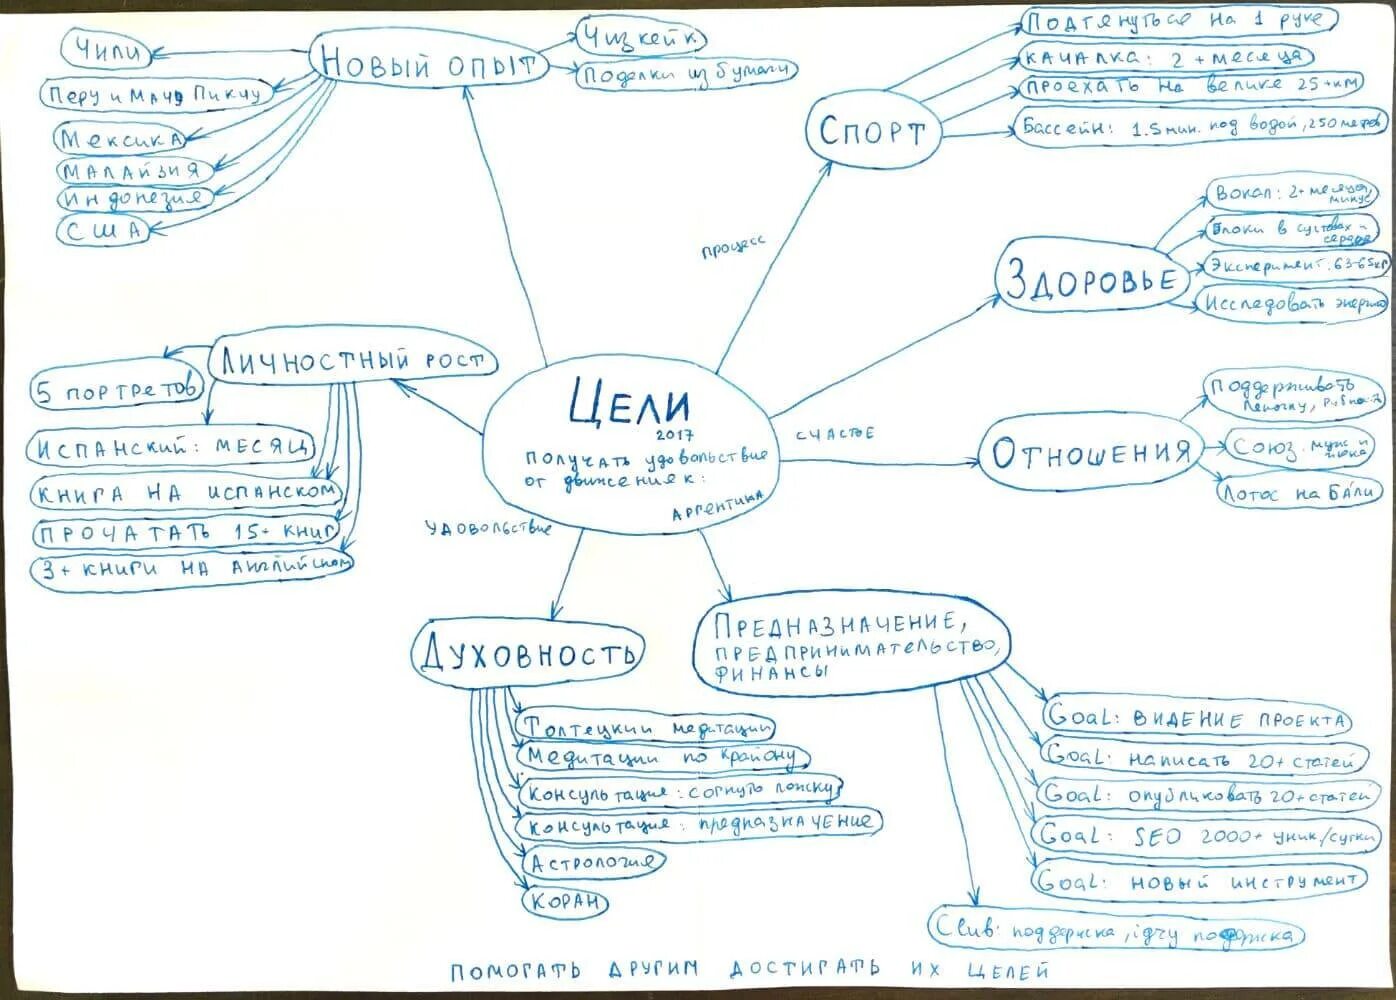 Новый опыт
Чили
Перу и Мачу Пикчу
Мексика
Малайзия
Индонезия
США
Чизкейк
Поделки из бумаги
Спорт
Подтянуться на 1 руке
Качалка: 2+ месяца
Проехать на велике 25+км
Бассейн: 1.5 мин. под водой, 250 метров
процесс
Здоровье
Вокал: 2+ месяца,
минус
Блоки в суставах и
сердце
Эксперимент: 63-65кг
Исследовать
Личностный рост
5 портретов
Испанский: месяц
Книга на испанском
Прочатать 15+ книг
3+ книги на английском
Цели
2017
получать удовольствие
от движения к:
Аргентина
счастье
удовольствие
Отношения
Поддерживать
Союз. муж и
жена
Лотос на Бали
Духовность
Толтецкии медитации
Медитации по Крайону
Консультация: согнуто ложку
Консультация: предназначение
Астрология
Коран
Предназначение,
предпринимательство,
финансы
Goal: видение проекта
Goal: написать 20+ статей
Goal: опубликовать 20+ статей
Goal: SEO 2000+ уник/сутки
Goal: новый инструмент
поддержка, поддержка
помогать другим достигать их целей